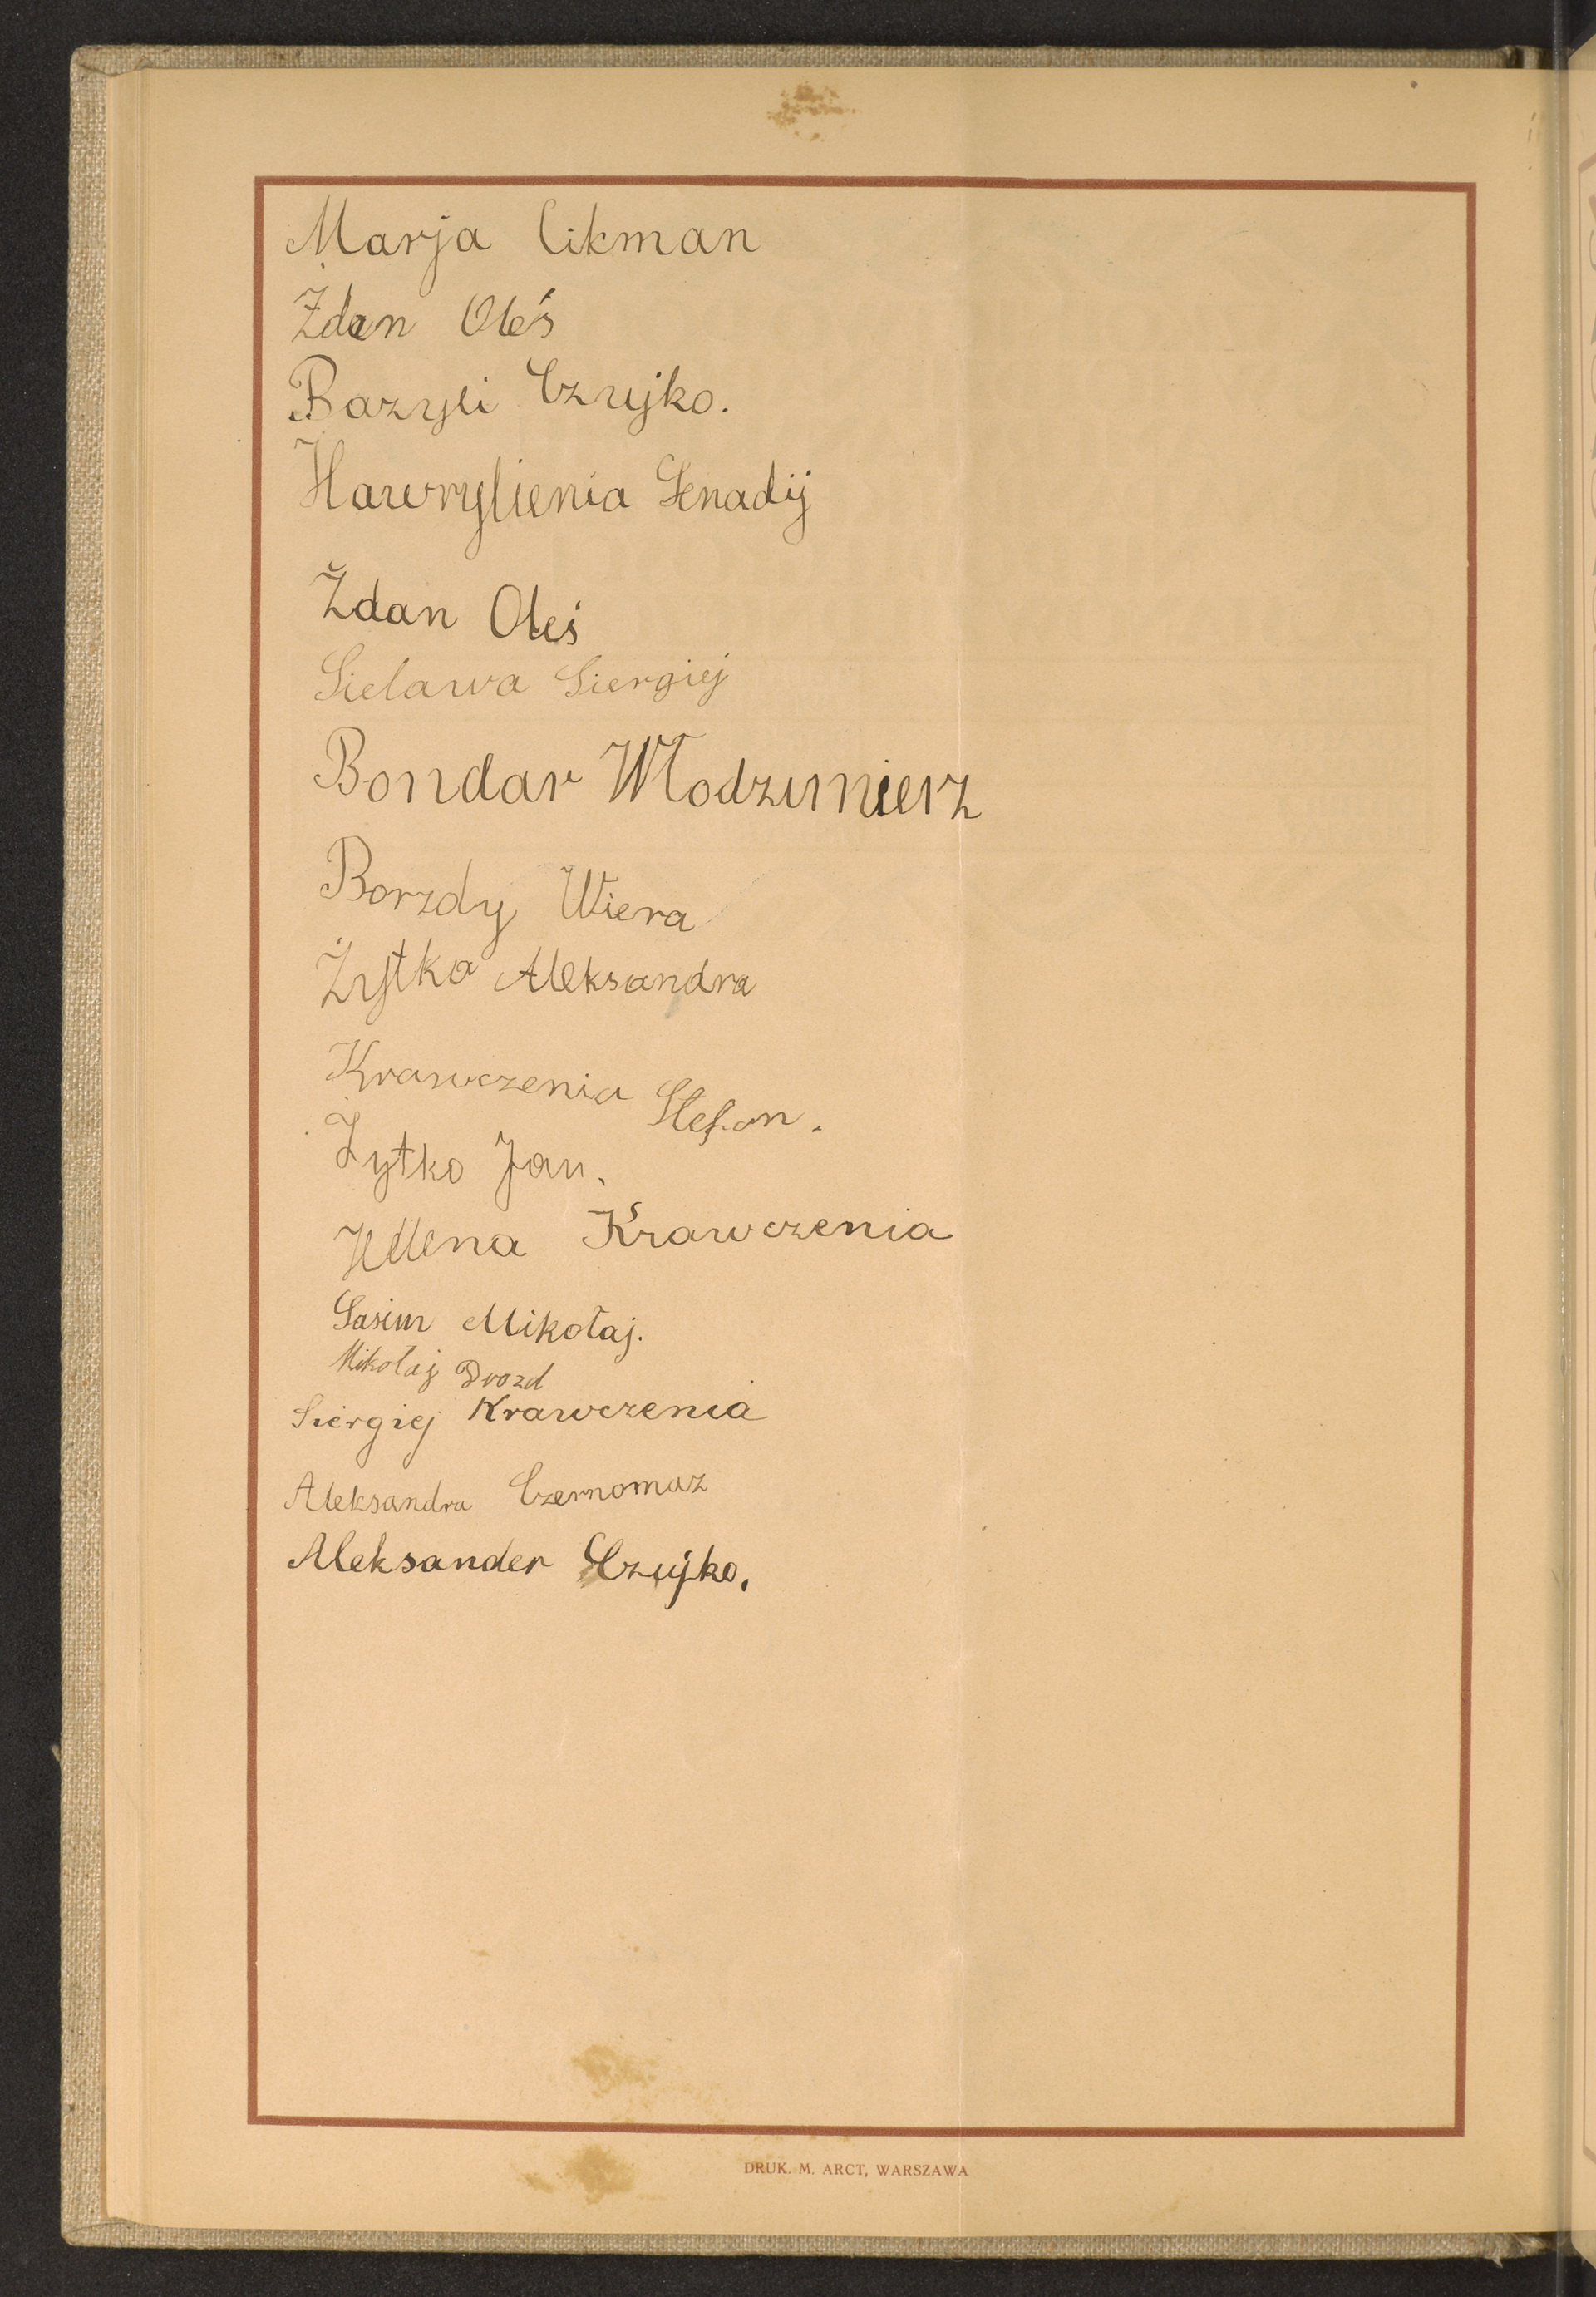 Marja Cikman
Żdan Oleś
Bazyli Czujko.
Hawrylienia Genadij
Żdan Oleś
Sielawa Siergiej
Bondar Włodzimierz
Borzdy Wiera
Żytko Aleksandra
Krawczenia Stefan.
Żytko Jan.
Hellena Krawczenia
Sasim Mikołaj.
Mikołaj Drozd
Siergiej Krawczenia
Aleksandra Czernomaz
Aleksander Czujko.
DRUK. M. ARCT, WARSZAWA